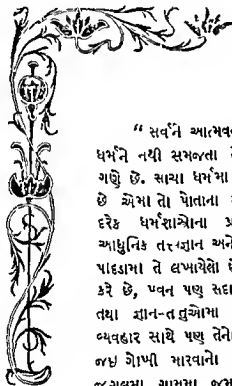 “ સર્વને આત્મવત
ધર્મને નથી સમજતા
ગણે છે. સાચા ધર્મમા
છે એમા તો પોતાના
દરેક ધર્મશાસ્ત્રોના પ્ર
આધુનિક તત્ત્વજ્ઞાન અને
પાદડામા તે લખાયેલો
કરે છે, પવન પણ સદા
તથા જ્ઞાન-તન્તુઓમા
વ્યવહાર સાથે પણ તેને
જઇ ગોખી મારવાનો
જંગલમા ગામમા જમ